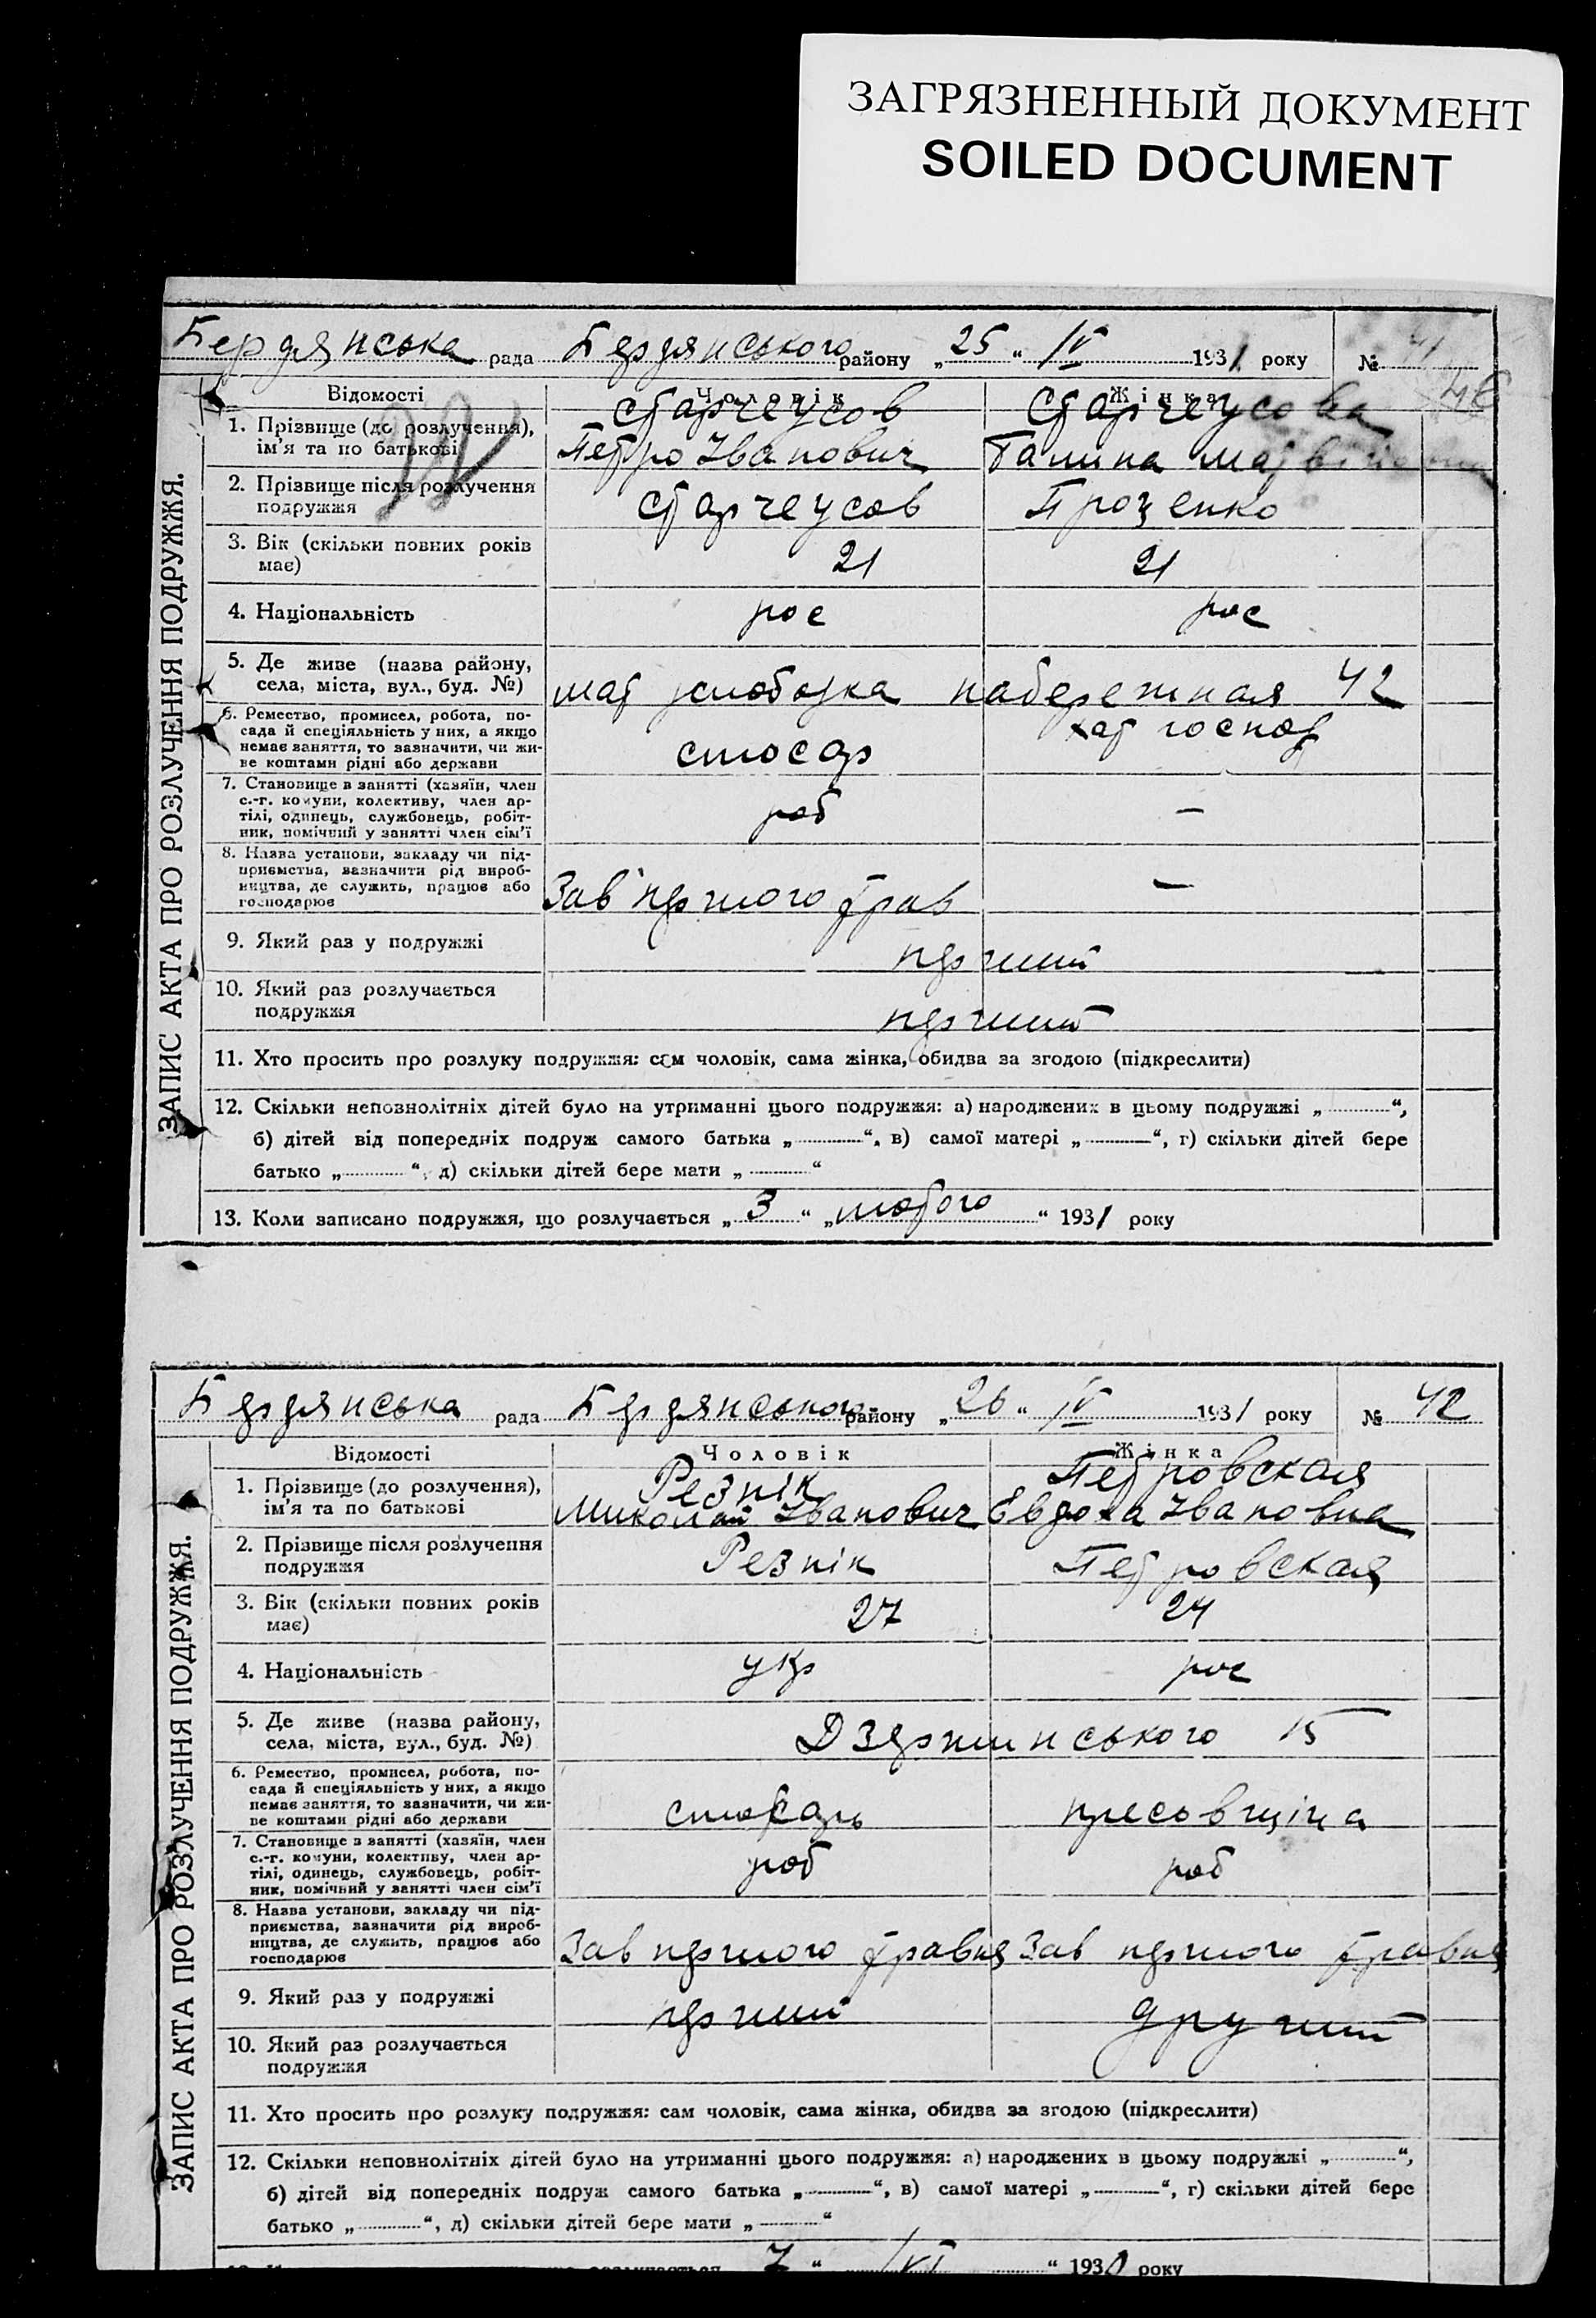 ЗАГРЯЗНЕННЫЙ ДОКУМЕНТ
SOILED DOCUMENT
Бердянська рада Бердянського району „25“ IV 1931 року №
ЗАПИС АКТА ПРО РОЗЛУЧЕННЯ ПОДРУЖЖЯ.
Відомості Чоловік Жінка
1. Прізвище (до розлучення), Старчеусов Старчеусова
ім'я та по батькові Петро Іванович Галина
2. Прізвище після розлучення Старчеусов Проценко
подружжя
3. Вік (скільки повних років 21 21
має)
4. Національність рос рос
5. Де живе (назва району,
села, міста, вул., буд. №) мат слободка набережная 42
6. Ремество, промисел, робота, по-
сада й спеціяльність у них, а якщо хат господ
немає заняття, то зазначити, чи жи- слюсар
ве коштами рідні або держави
7. Становище в занятті (хазяїн, член
с.-г. комуни, колективу, член ар-
тілі, одинець, службовець, робіт- роб —
ник, помічний у занятті член сім'ї
8. Назва установи, закладу чи під-
приємства, зазначити рід вироб-
ництва, де служить, працює або —
господарює Зав першого трав
9. Який раз у подружжі перший
10. Який раз розлучається
подружжя перший
11. Хто просить про розлуку подружжя: сам чоловік, сама жінка, обидва за згодою (підкреслити)
12. Скільки неповнолітніх дітей було на утриманні цього подружжя: а) народжених в цьому подружжі „ “,
б) дітей від попередніх подруж самого батька „ “, в) самої матері „ “, г) скільки дітей бере
батько „ “, д) скільки дітей бере мати „ “
13. Коли записано подружжя, що розлучається „3“ „лютого“ 1931 року
Бердянська рада Бердянського району „26“ IV 1931 року № 42
ЗАПИС АКТА ПРО РОЗЛУЧЕННЯ ПОДРУЖЖЯ.
Відомості Чоловік Жінка
1. Прізвище (до розлучення), Резнік Петровская
ім'я та по батькові Миколай Іванович Євдоха Івановна
2. Прізвище після розлучення Резнік Петровская
подружжя
3. Вік (скільки повних років 27 24
має)
4. Національність укр рос
5. Де живе (назва району,
села, міста, вул., буд. №) Дзержинського 15
6. Ремество, промисел, робота, по-
сада й спеціяльність у них, а якщо
немає заняття, то зазначити, чи жи- слюсарь пресовщіца
ве коштами рідні або держави
7. Становище в занятті (хазяїн, член
с.-г. комуни, колективу, член ар-
тілі, одинець, службовець, робіт- роб роб
ник, помічний у занятті член сім'ї
8. Назва установи, закладу чи під-
приємства, зазначити рід вироб-
ництва, де служить, працює або
господарює Зав першого травня Зав першого травня
9. Який раз у подружжі перший другий
10. Який раз розлучається
подружжя
11. Хто просить про розлуку подружжя: сам чоловік, сама жінка, обидва за згодою (підкреслити)
12. Скільки неповнолітніх дітей було на утриманні цього подружжя: а) народжених в цьому подружжі „ “,
б) дітей від попередніх подруж самого батька „ “, в) самої матері „ “, г) скільки дітей бере
батько „ “, д) скільки дітей бере мати „ “
розлучається 7 “ 1930 року